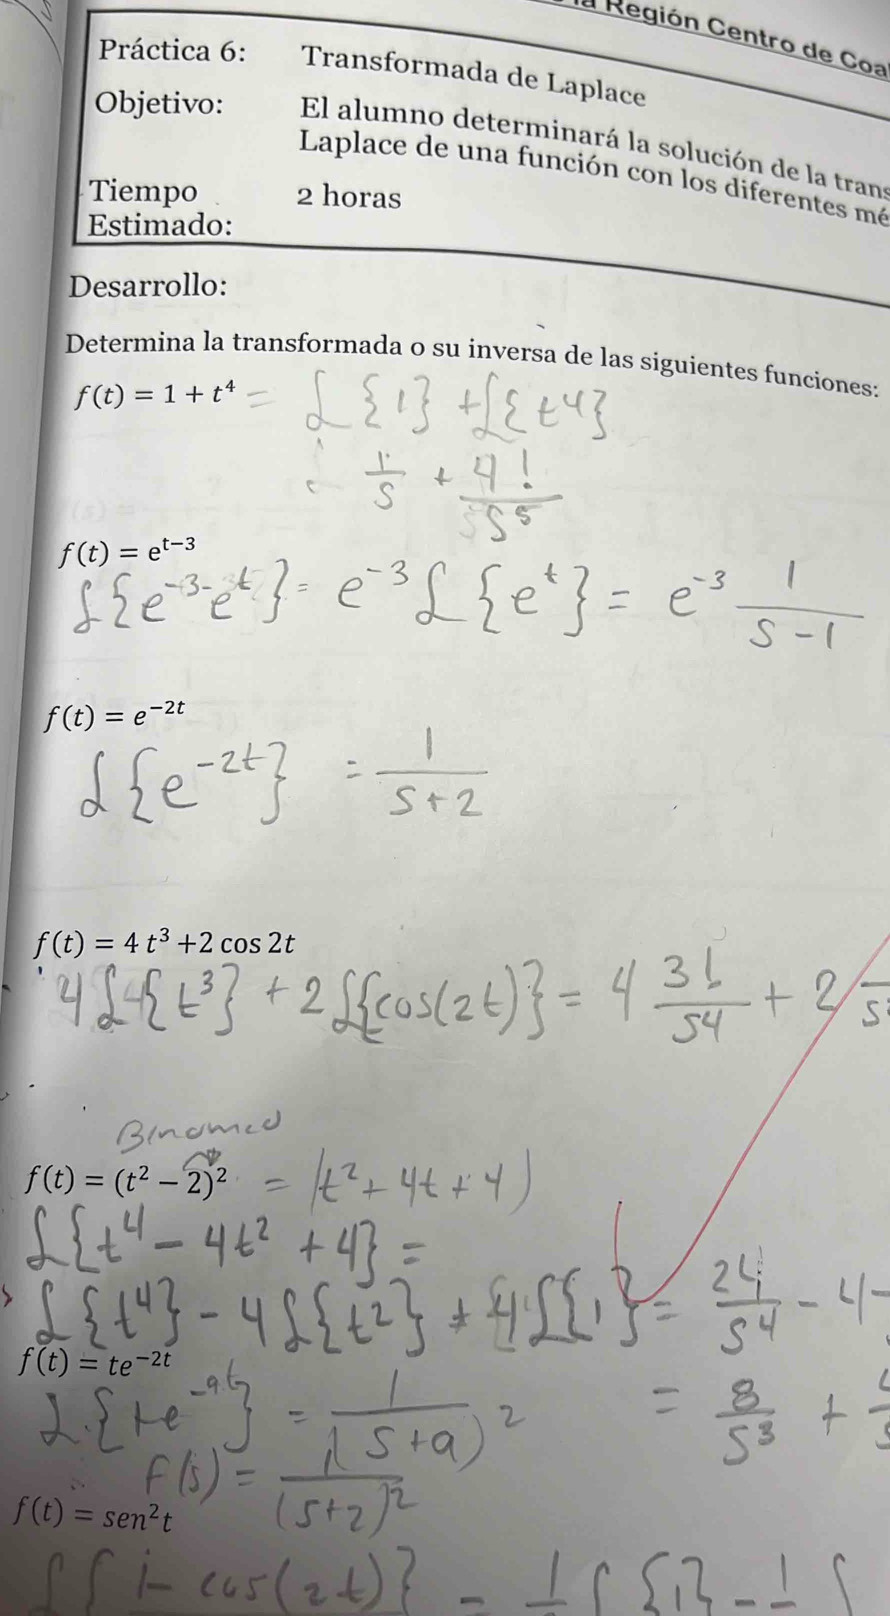 la Región Centro de Coa
Práctica 6: Transformada de Laplace
Objetivo: El alumno determinará la solución de la trans
Laplace de una función con los diferentes mé
Tiempo Estimado: 2 horas
Desarrollo:
Determina la transformada o su inversa de las siguientes funciones:
f(t) = 1 + t⁴ = ℒ{1} + ℒ{t⁴}
1/s + 4!/s⁵
f(t) = e^(t−3)
ℒ{e⁻³·eᵗ} = e⁻³ ℒ{eᵗ} = e⁻³ 1/(s−1)
f(t) = e^(−2t)
ℒ{e^(−2t)} = 1/(s+2)
f(t) = 4 t³ +2 cos 2t
4ℒ{t³} + 2ℒ{cos(2t)} = 4 3!/s⁴ + 2
f(t) = (t² − 2)² = (t² + 4t + 4)
ℒ{t⁴ − 4t² + 4} =
ℒ{t⁴} − 4ℒ{t²} + 4ℒ{1} = 24/s⁴ − 4
= 8/s³ +
f(t) = te^(−2t)
ℒ{te^(−at)} = 1/(s+a)²
F(s) = 1/(s+2)²
f(t) = sen²t
1− cos(2t)} = ℒ{1} −